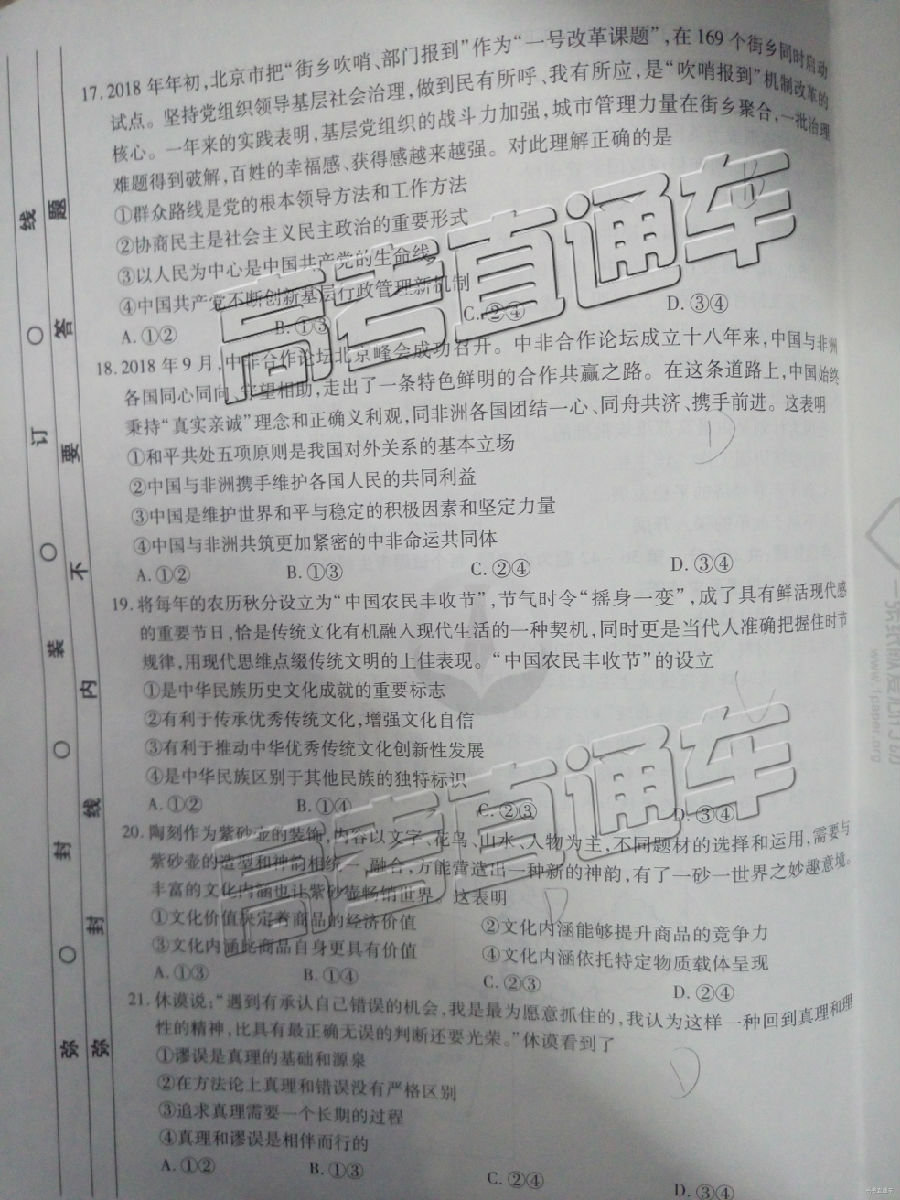 17.2018年年初,北京市把“街乡吹哨、部门报到”作为“一号改革课题”,在169个街乡同时启动
试点。坚持党组织领导基层社会治理,做到民有所呼、我有所应,是“吹哨报到”机制改革的
核心。一年来的实践表明,基层党组织的战斗力加强,城市管理力量在街乡聚合,一批治理
难题得到破解,百姓的幸福感、获得感越来越强。对此理解正确的是
①群众路线是党的根本领导方法和工作方法
②协商民主是社会主义民主政治的重要形式
③以人民为中心是中国共产党的生命线
④中国共产党不断创新基层行政管理新机制
A.①② B.①③ C.②④ D.③④
18.2018年9月,中非合作论坛北京峰会成功召开。中非合作论坛成立十八年来,中国与非洲
各国同心同向、守望相助,走出了一条特色鲜明的合作共赢之路。在这条道路上,中国始终
秉持“真实亲诚”理念和正确义利观,同非洲各国团结一心、同舟共济、携手前进。这表明
①和平共处五项原则是我国对外关系的基本立场
②中国与非洲携手维护各国人民的共同利益
③中国是维护世界和平与稳定的积极因素和坚定力量
④中国与非洲共筑更加紧密的中非命运共同体
A.①② B.①③ C.②④ D.③④
19.将每年的农历秋分设立为“中国农民丰收节”,节气时令“摇身一变”,成了具有鲜活现代感
的重要节日,恰是传统文化有机融入现代生活的一种契机,同时更是当代人准确把握住时节
规律,用现代思维点缀传统文明的上佳表现。“中国农民丰收节”的设立
①是中华民族历史文化成就的重要标志
②有利于传承优秀传统文化,增强文化自信
③有利于推动中华优秀传统文化创新性发展
④是中华民族区别于其他民族的独特标识
A.①② B.①④ C.②③ D.③④
20.陶刻作为紫砂壶的装饰,内容以文字、花鸟、山水、人物为主,不同题材的选择和运用,需要与
紫砂壶的造型和神韵相统一、融合,方能营造出一种新的神韵,有了一砂一世界之妙趣意境。
丰富的文化内涵也让紫砂壶畅销世界。这表明
①文化价值决定着商品的经济价值 ②文化内涵能够提升商品的竞争力
③文化内涵比商品自身更具有价值 ④文化内涵依托特定物质载体呈现
A.①③ B.①④ C.②③ D.②④
21.休谟说:“遇到有承认自己错误的机会,我是最为愿意抓住的,我认为这样一种回到真理和理
性的精神,比具有最正确无误的判断还要光荣。”休谟看到了
①谬误是真理的基础和源泉
②在方法论上真理和错误没有严格区别
③追求真理需要一个长期的过程
④真理和谬误是相伴而行的
A.①② B.①③ C.②④ D.③④
高考直通车
高考直通车
线 订 装 封 弥
题 答 要 不 内 线 封 弥
www.1paper.org